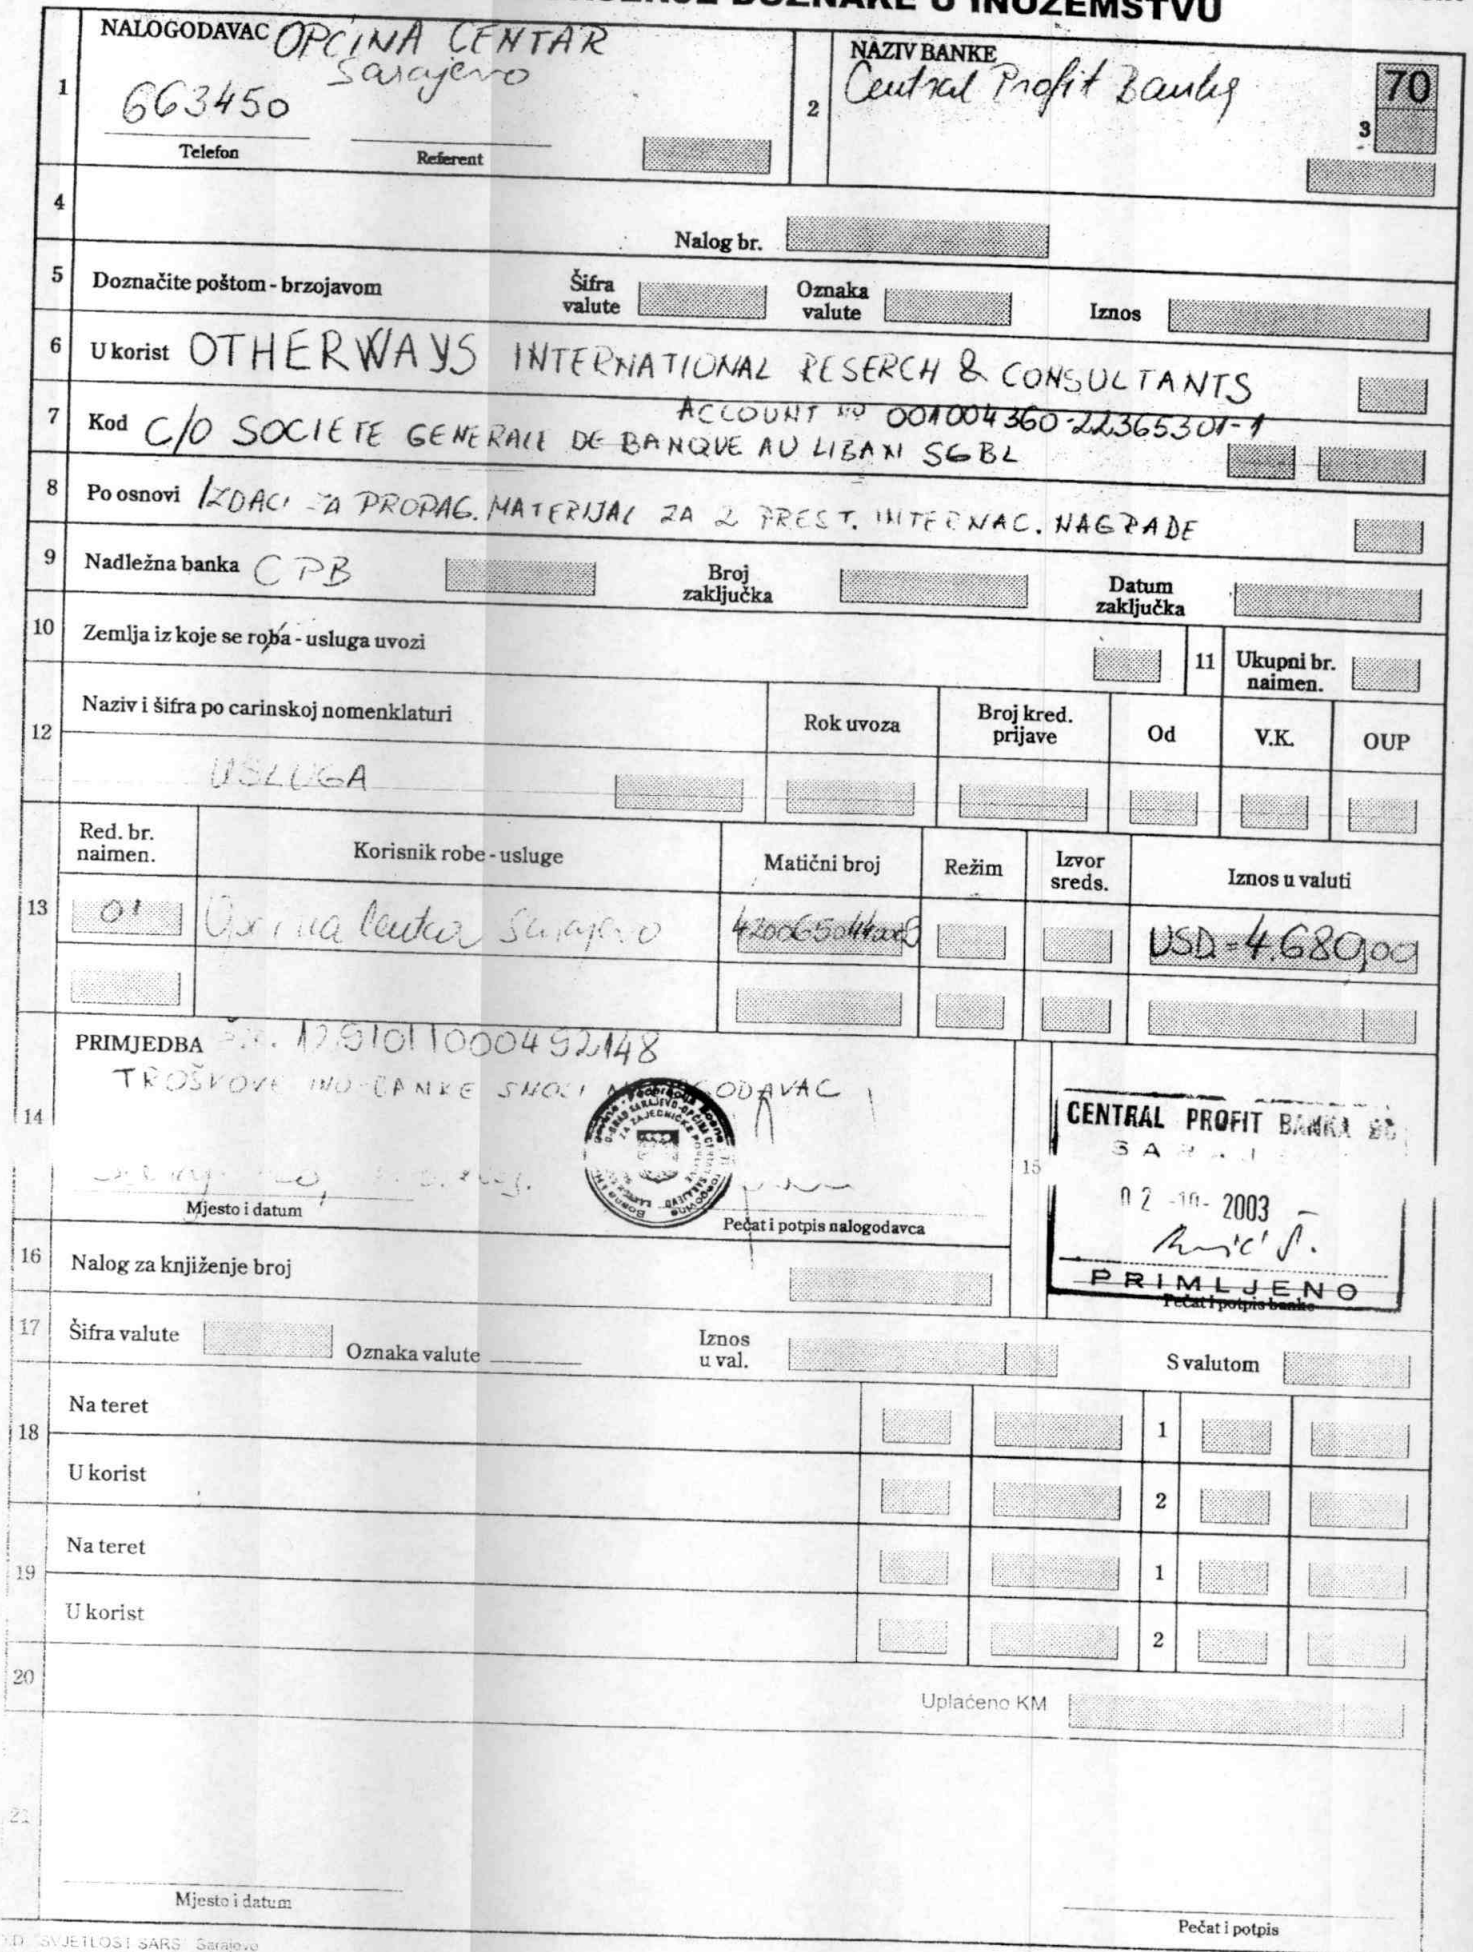 DOZNAKE U INOZEMSTVU
1 NALOGODAVAC OPĆINA CENTAR
Sarajevo
663450
Telefon Referent
2 NAZIV BANKE
Central Profit Banka
70
3
4
Nalog br.
5 Doznačite poštom - brzojavom Šifra valute Oznaka valute Iznos
6 U korist OTHERWAYS INTERNATIONAL RESERCH & CONSULTANTS
ACCOUNT NO 001004360-22365301-1
7 Kod C/O SOCIETE GENERALE DE BANQUE AU LIBAN SGBL
8 Po osnovi IZDACI ZA PROPAG. MATERIJAL ZA 2 PREST. INTERNAC. NAGRADE
9 Nadležna banka CPB Broj zaključka Datum zaključka
10 Zemlja iz koje se roba - usluga uvozi 11 Ukupni br. naimen.
12 Naziv i šifra po carinskoj nomenklaturi Rok uvoza Broj kred. prijave Od V.K. OUP
USLUGA
13 Red. br. naimen. Korisnik robe - usluge Matični broj Režim Izvor sreds. Iznos u valuti
01 Općina Centar Sarajevo USD=4.680,00
14 PRIMJEDBA 1291011000492148
TROŠKOVE INO-BANKE SNOSI NALOGODAVAC
Mjesto i datum Pečat i potpis nalogodavca
15 CENTRAL PROFIT BANKA
02 -10- 2003
PRIMLJENO
Pečat i potpis banke
16 Nalog za knjiženje broj
17 Šifra valute Oznaka valute Iznos u val. S valutom
18 Na teret 1
U korist 2
19 Na teret 1
U korist 2
20 Uplaćeno KM
21
Mjesto i datum Pečat i potpis
SVJETLOST SARS Sarajevo